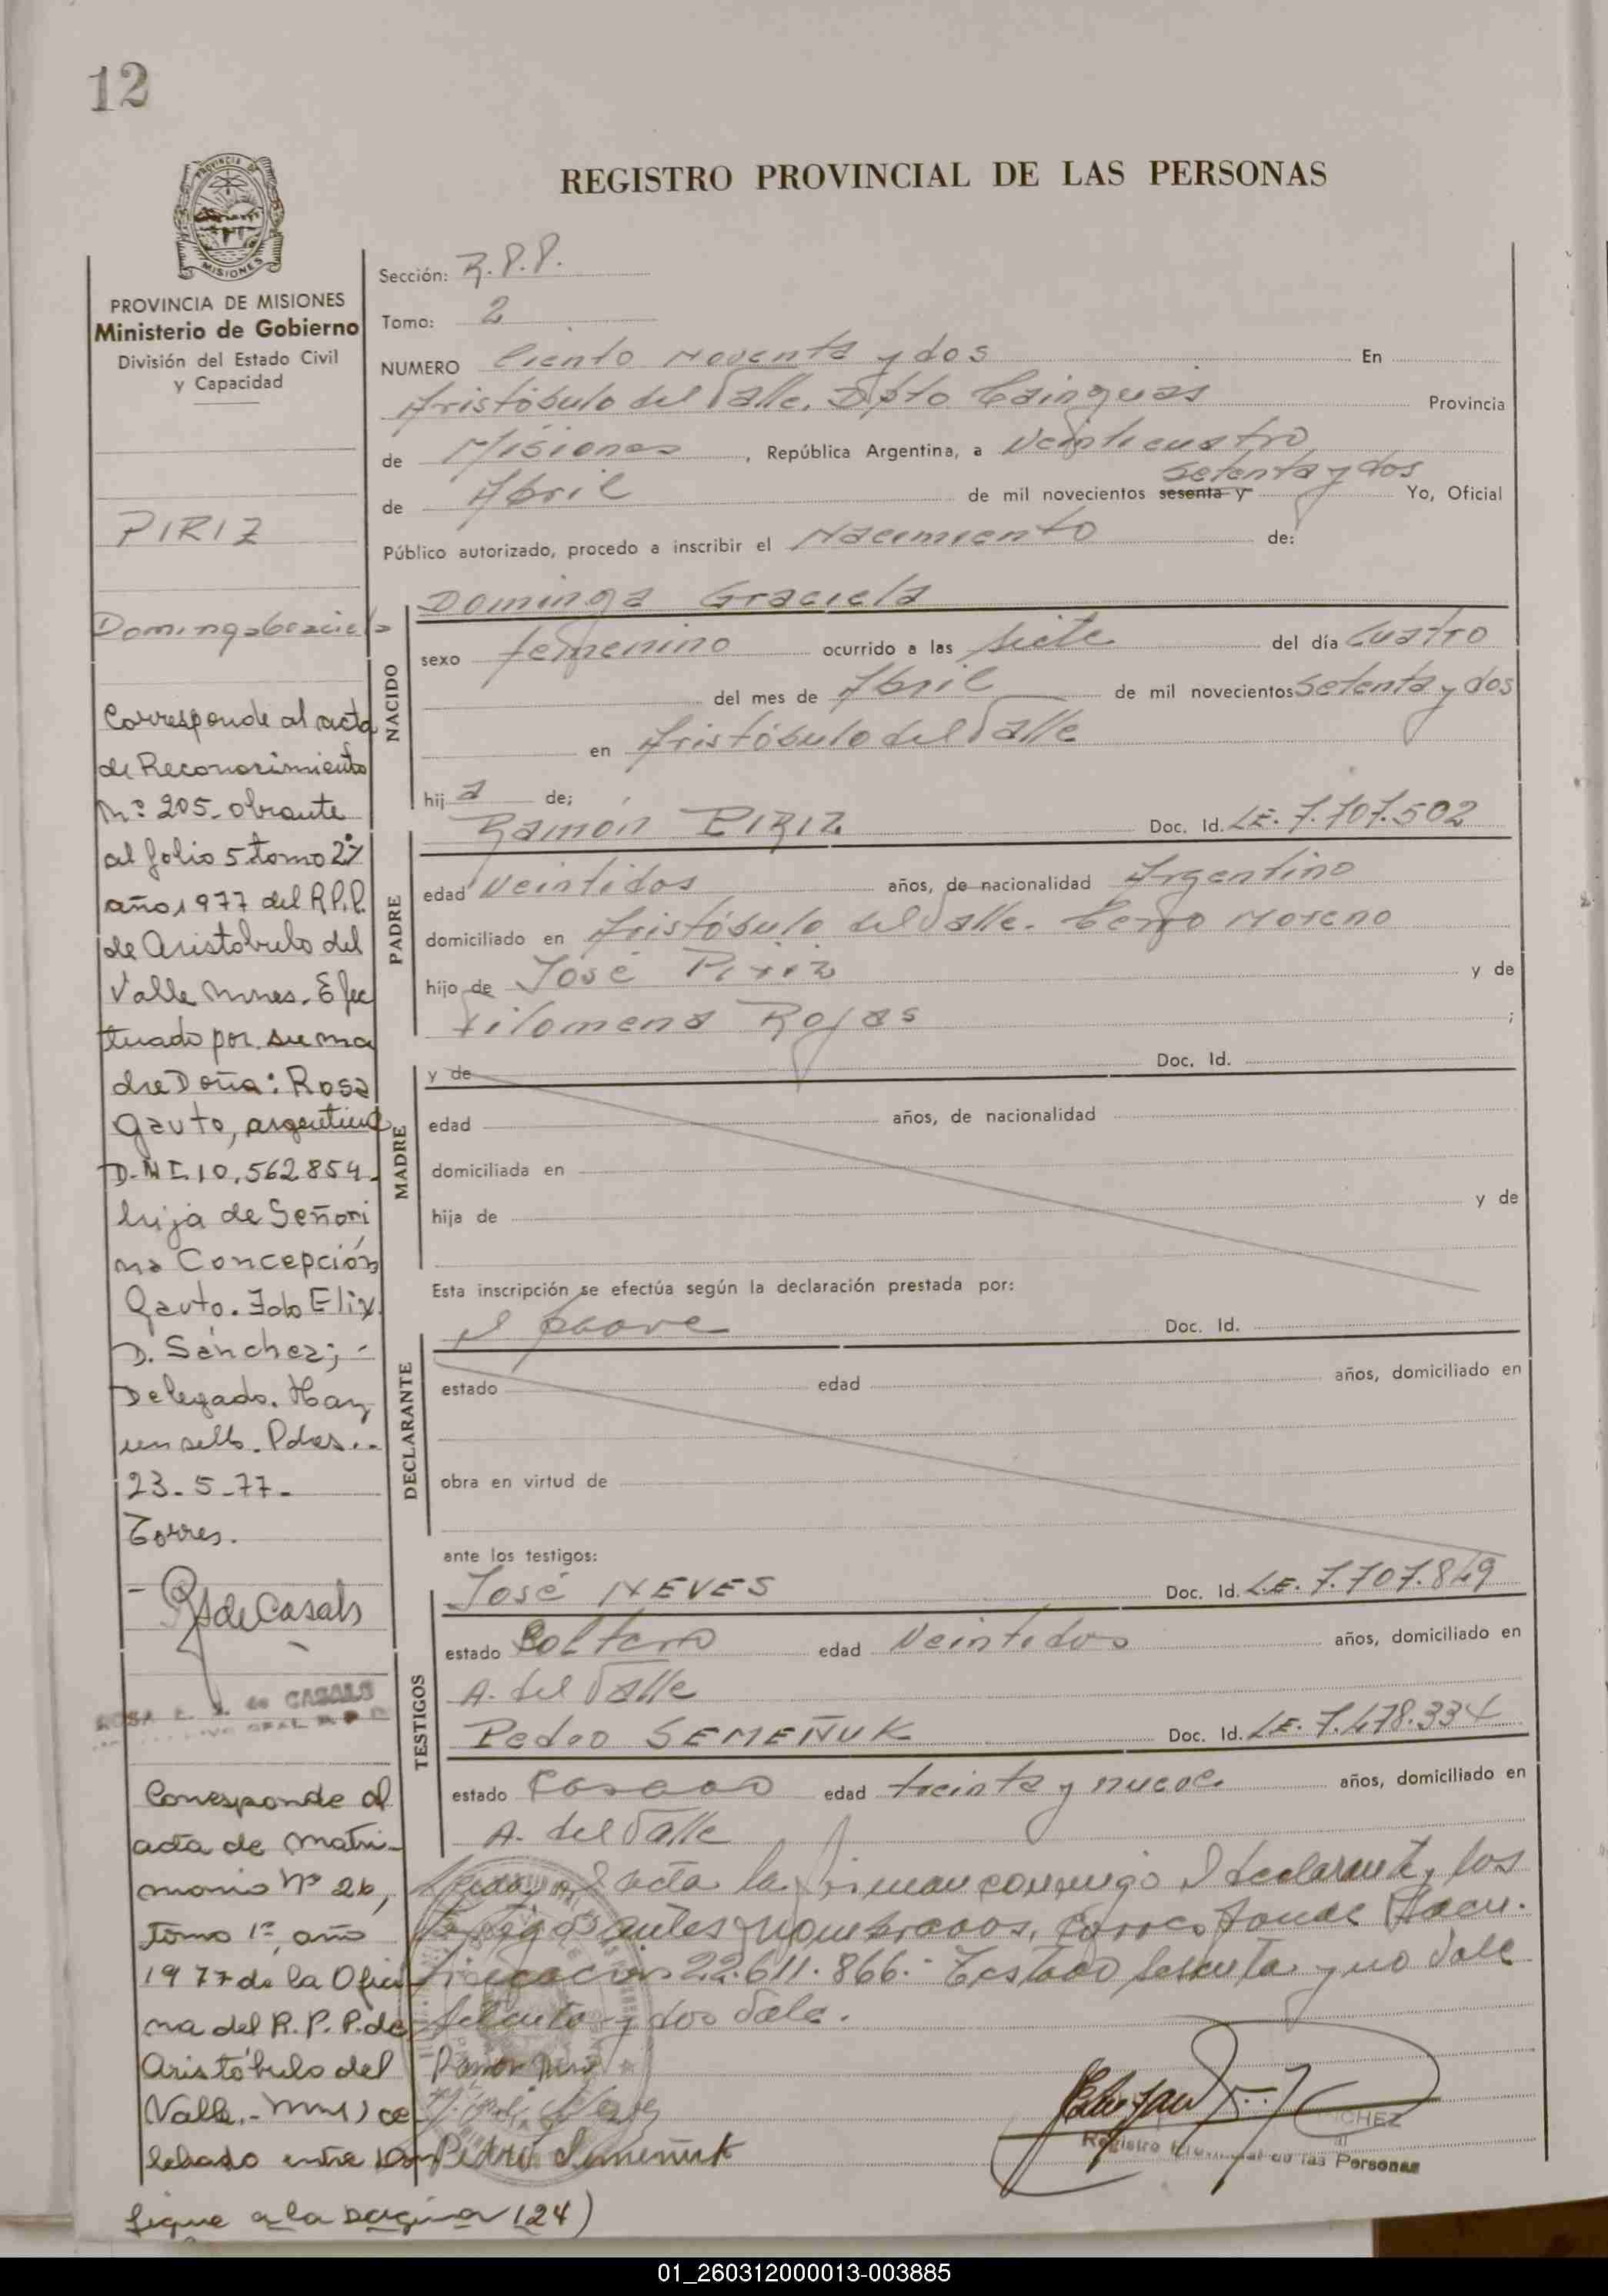 12
REGISTRO PROVINCIAL DE LAS PERSONAS
PROVINCIA DE MISIONES
Ministerio de Gobierno
División del Estado Civil
y Capacidad
PIRIZ
Dominga Graciela
Corresponde al acta
de Reconocimiento
Nº 205. obrante
al folio 5 tomo 2º
año 1977 del R.P.P.
de Aristobulo del
Valle Mnes. Efec
tuado por su ma
dre Doña: Rosa
Gauto, argentina
D.N.I. 10.562.854.
hija de Señori
na Concepción
Gauto. Fdo Elix
D. Sánchez; -
Delegado. Hay
un sello. Pdas..
23-5-77-
Torres.
de Casals
ROSA E. de CASALS
Corresponde al
acta de matri-
monio Nº 26,
tomo 1º, año
1977 de la Ofici
na del R.P.P. de
Aristóbulo del
Valle.- Mnes) ce
lebrado entre Don
sigue a la pagina (24)
Sección: R.P.P.
Tomo: 2
NUMERO Ciento Noventa y dos En
Aristóbulo del Valle. Dpto. Cainguas Provincia
de Misiones, República Argentina, a Veinticuatro
de Abril de mil novecientos sesenta y setenta y dos Yo, Oficial
Público autorizado, procedo a inscribir el Nacimiento de:
NACIDO
Dominga Graciela
sexo femenino ocurrido a las siete del día Cuatro
del mes de Abril de mil novecientos Setenta y dos
en Aristóbulo del Valle
hija de;
PADRE
Ramón PIRIZ Doc. Id. LE. 7.707.502
edad Veintidos años, de nacionalidad Argentino
domiciliado en Aristóbulo del Valle. Cerro Moreno
hijo de José Piriz y de
Filomena Rojas ;
MADRE
y de Doc. Id.
edad años, de nacionalidad
domiciliada en
hija de y de
Esta inscripción se efectúa según la declaración prestada por:
DECLARANTE
el padre Doc. Id.
estado edad años, domiciliado en
obra en virtud de
ante los testigos:
TESTIGOS
José NEVES Doc. Id. L.E. 7.707.849
estado Soltero edad Veintidos años, domiciliado en
A. del Valle
Pedro SEMEÑUK Doc. Id. LE. 7.478.334
estado Casado edad treinta y nueve años, domiciliado en
A. del Valle
Leida el acta la firman conmigo el declarante, los
testigos antes nombrados.
22.611.866.- Testado sesenta y no vale
setenta y dos Vale.
Ramon Piriz
Pedro Semeñuk
CHEZ
Registro Provincial de las Personas
01_260312000013-003885